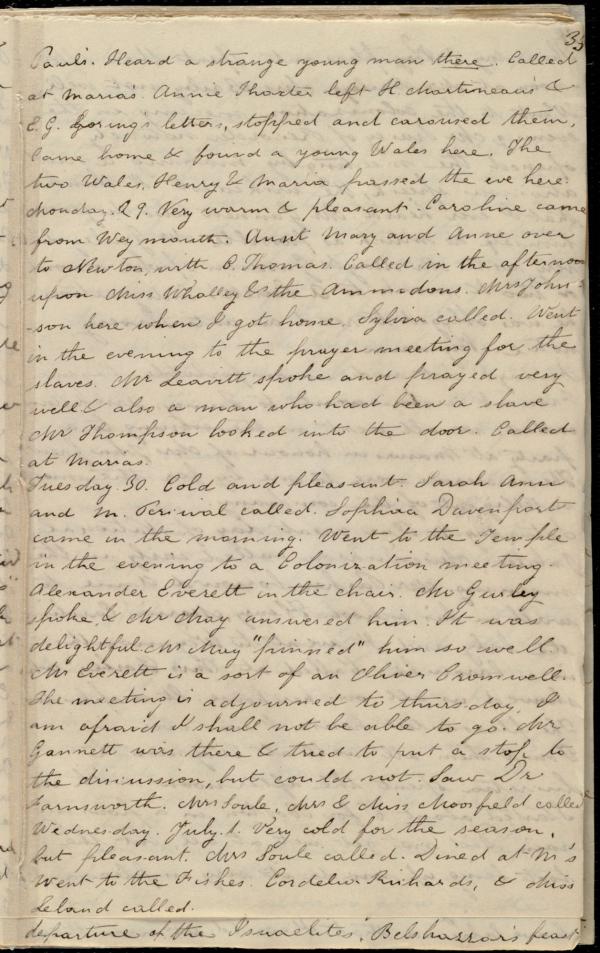 35
Paul's. Heard a strange young man there. Called
at Maria's. Annie Thaxter left H Martineau's &
E. G. Loring's letters, stopped and caroused them.
Came home & found a young Wales here. The
two Wales, Henry & Maria passed the eve here
Monday. 29. Very warm & pleasant. Caroline came
from Weymouth. Aunt Mary and Anne over
to Newton, with C. Thomas. Called in the afternoon
upon Miss Whalley & the Ammidons. Mrs John
-son here when I got home. Sylvia called. Went
in the evening to the prayer meeting for the
slaves. Mr Leavitt spoke and prayed very
well & also a man who had been a slave
Mr Thompson looked into the door. Called
at Marias.
Tuesday. 30. Cold and pleasant. Sarah Ann
and M. Percival called. Sophia Davenport
came in the morning. Went to the Temple
in the evening to a Colonization meeting.
Alexander Everett in the chair. Mr Gurley
spoke, & Mr May answered him. It was
delightful. Mr May "pinned" him so well.
Mr Everett is a sort of an Oliver Cromwell.
The meeting is adjourned to thursday. I
am afraid I shall not be able to go. Mr
Gannett was there & tried to put a stop to
the discussion, but could not. Saw Dr
Farnsworth. Mrs Soule, Mrs & Miss Moorfield called
Wednesday. July. 1. Very cold for the season,
but pleasant. Mrs Soule called. Dined at M's
Went to the Fishes. Cordelia Richards, & Miss
Leland called.
departure of the Isnaelites", Belshazzar's feast